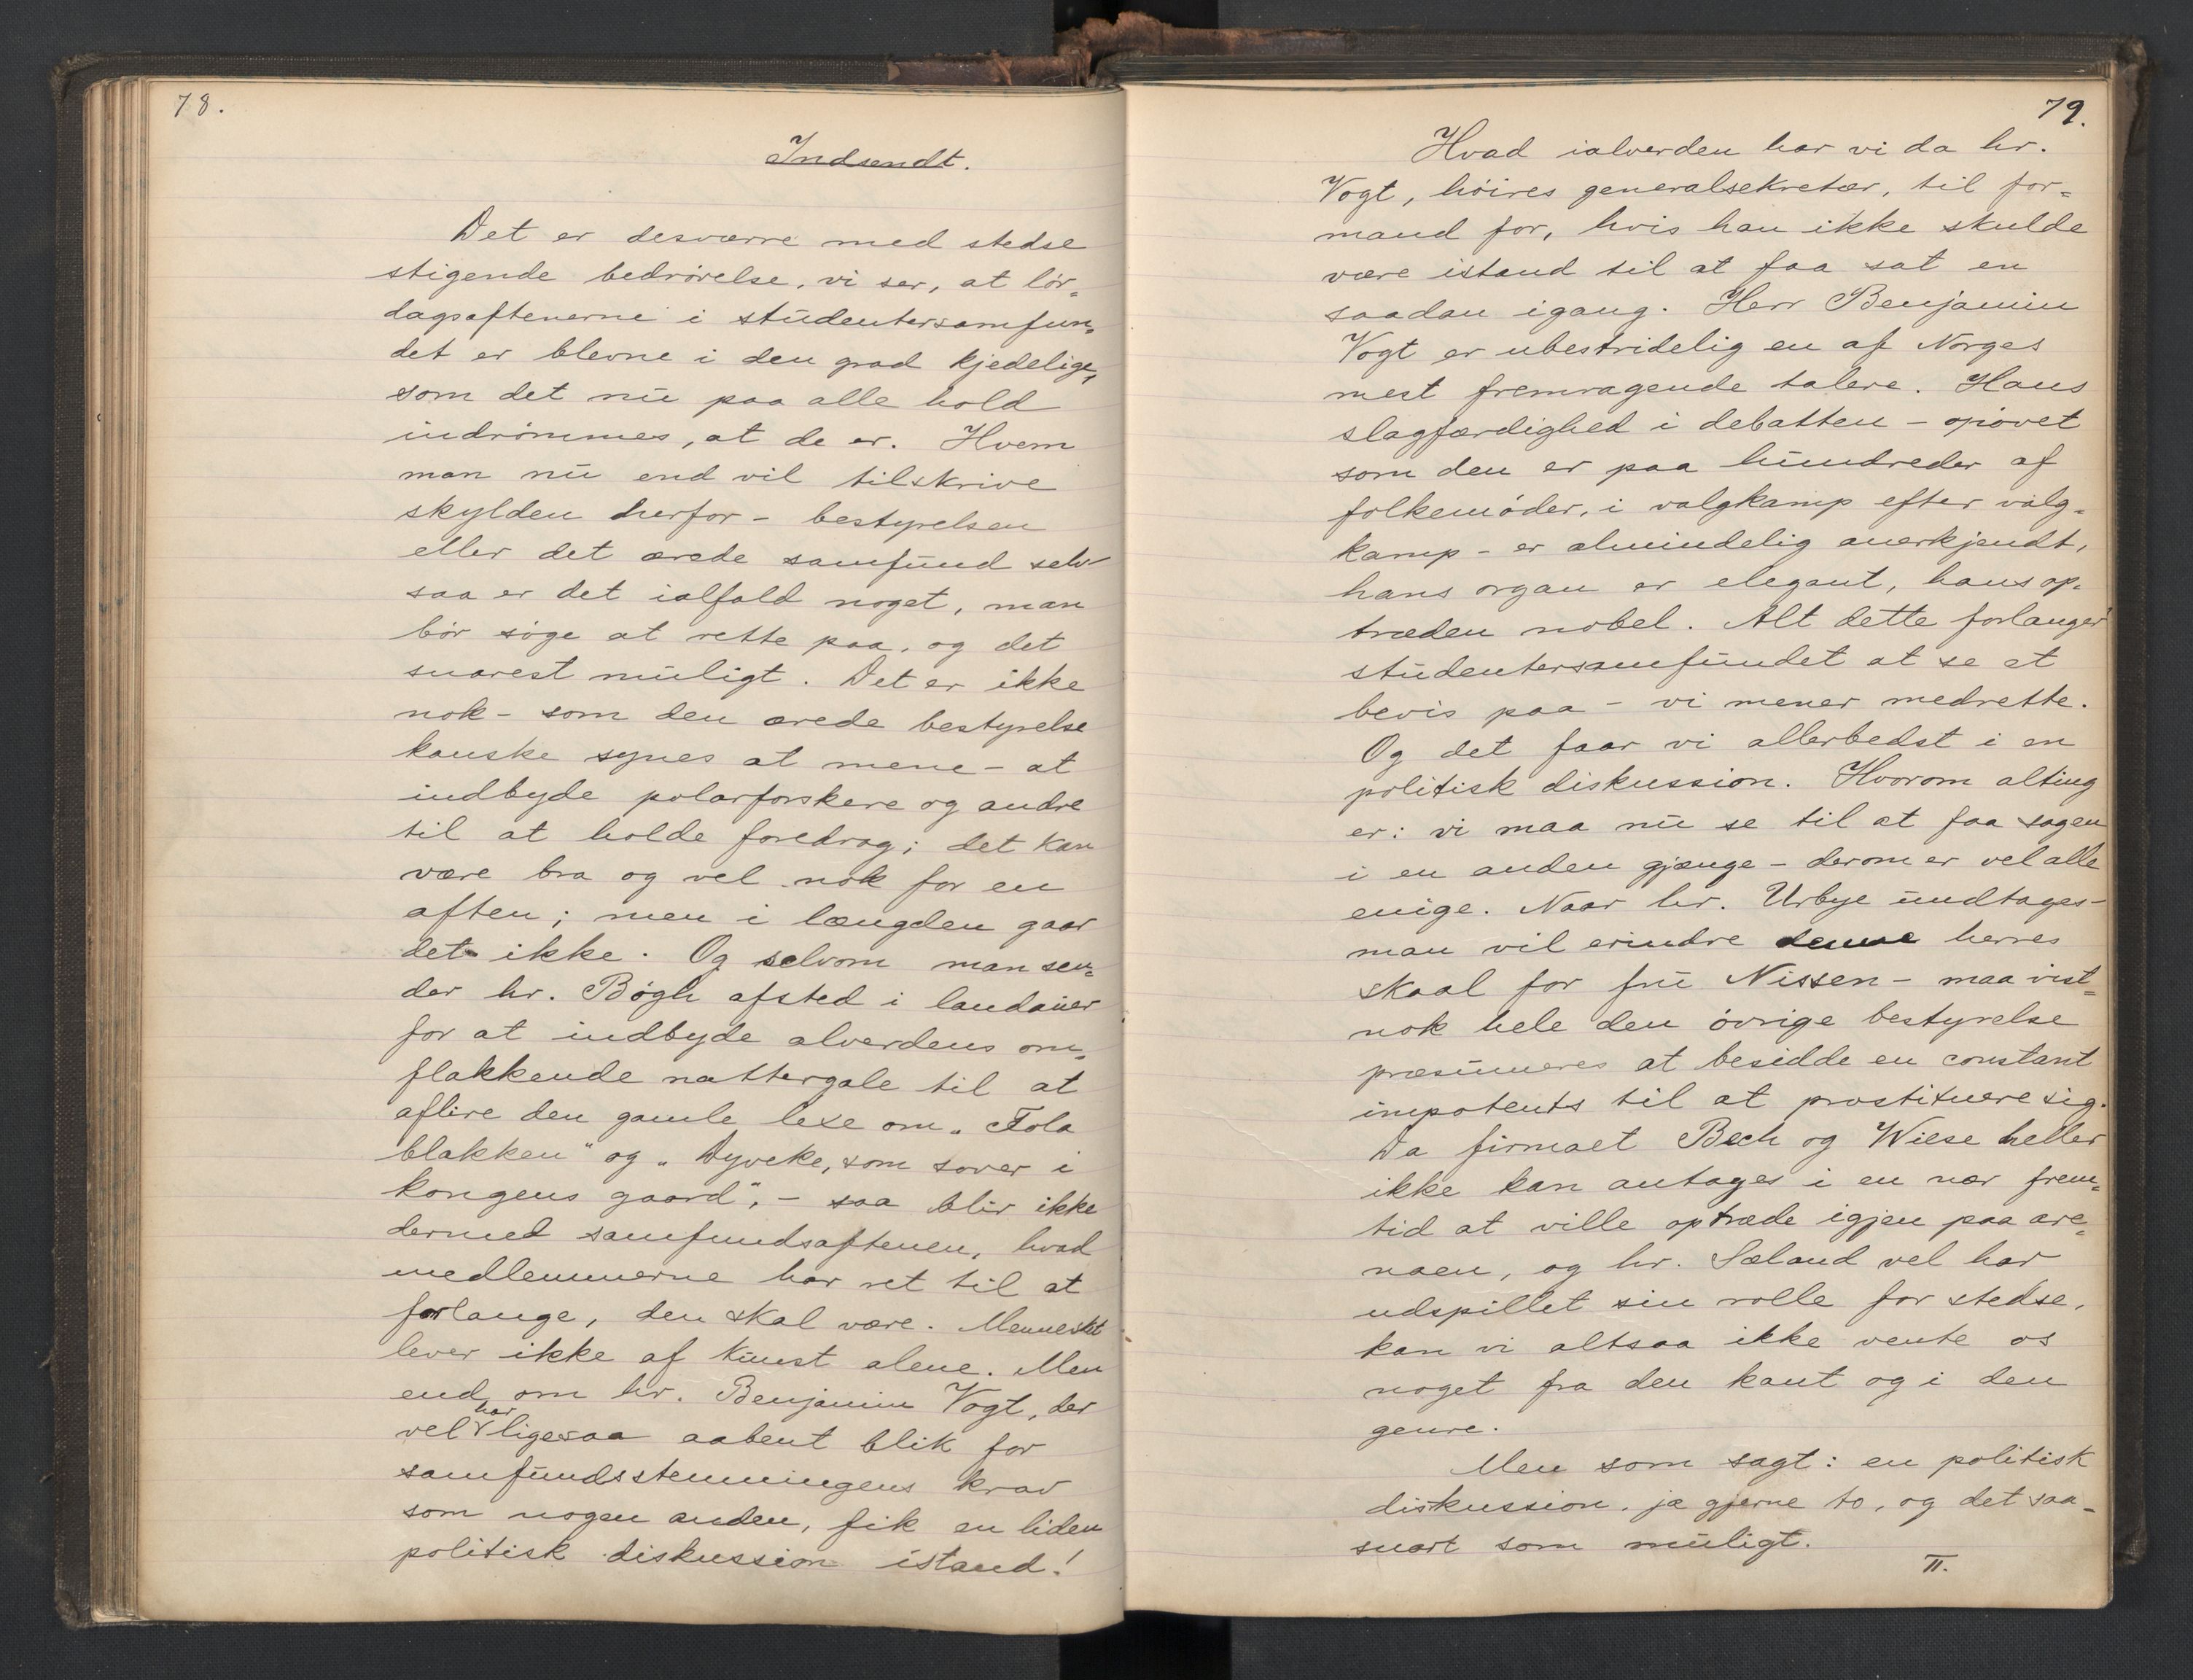 78.
Indsendt.
Det er desværre med stedse
stigende bedrövelse, vi ser, at lör=
dagsaftenerne i studentersamfun=
det er blevne i den grad kjedelige,
som det nu paa alle hold
indrömmes, at de er. Hvem
man nu end vil tilskrive
skylden herfor - bestyrelsen
eller det ærede samfund selv
saa er det ialfald noget, man
bör söge at rette paa, og det
snarest muligt. Det er ikke
nok - som den ærede bestyrelse
kanske synes at mene - at
indbyde polarforskere og andre
til at holde foredrag; det kan
være bra og vel nok for en
aften; men i længden gaar
det ikke. Og selvom man sen=
der hr. Bögh afsted i landauer
for at indbyde alverdens om=
flakkende nattergale til at
aflire den gamle lexe om „Fola
blakken" og „Dyveke, som sover i
kongens gaard", - saa blir ikke
dermed samfundsaftenen, hvad
medlemmerne har ret til at
forlange, den skal være. Mennesket
lever ikke af kunst alene. Men
end om hr. Benjamin Vogt, der
vel har ligesaa aabent blik for
samfundsstemningens krav
som nogen anden, fik en liden
politisk diskussion istand!
79.
Hvad ialverden har vi da hr.
Vogt, höires generalsekretær, til for=
mand for, hvis han ikke skulde
være istand til at faa sat en
saadan igang. Herr Benjamin
Vogt er ubestridelig en af Norges
mest fremragende talere. Hans
slagfærdighed i debatten - opövet
som den er paa hundreder af
folkemöder, i valgkamp efter valg=
kamp - er almindelig anerkjendt,
hans organ er elegant, hans op=
træden nobel. Alt dette forlanger
studentersamfundet at se et
bevis paa - vi mener medrette.
Og det faar vi allerbedst i en
politisk diskussion. Hvorom alting
er: vi maa nu se til at faa sagen
i en anden gjænge - derom er vel alle
enige. Naar hr. Urbye undtages -
man vil erindre denne herres
skaal for fru Nissen - maa vist=
nok hele den övrige bestyrelse
præsumeres at besidde en constant
impotents til at prostituere sig.
Da firmaet Bech og Wiese heller
ikke kan antages i en nær frem=
tid at ville optræde igjen paa are=
naen, og hr. Sæland vel har
udspillet sin rolle for stedse,
kan vi altsaa ikke vente os
noget fra den kant og i den
genre.
Men som sagt: en politisk
diskussion, ja gjerne to, og det saa-
snart som muligt.
π.